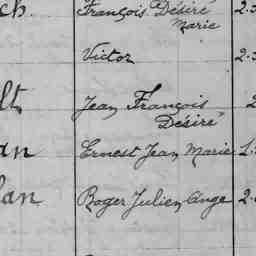 ch François Désiré 2.
Marie
Victor 2.
lt Jean François 2
Désiré
an Ernest Jean Marie 1.
lan Roger Julien Ange 2.